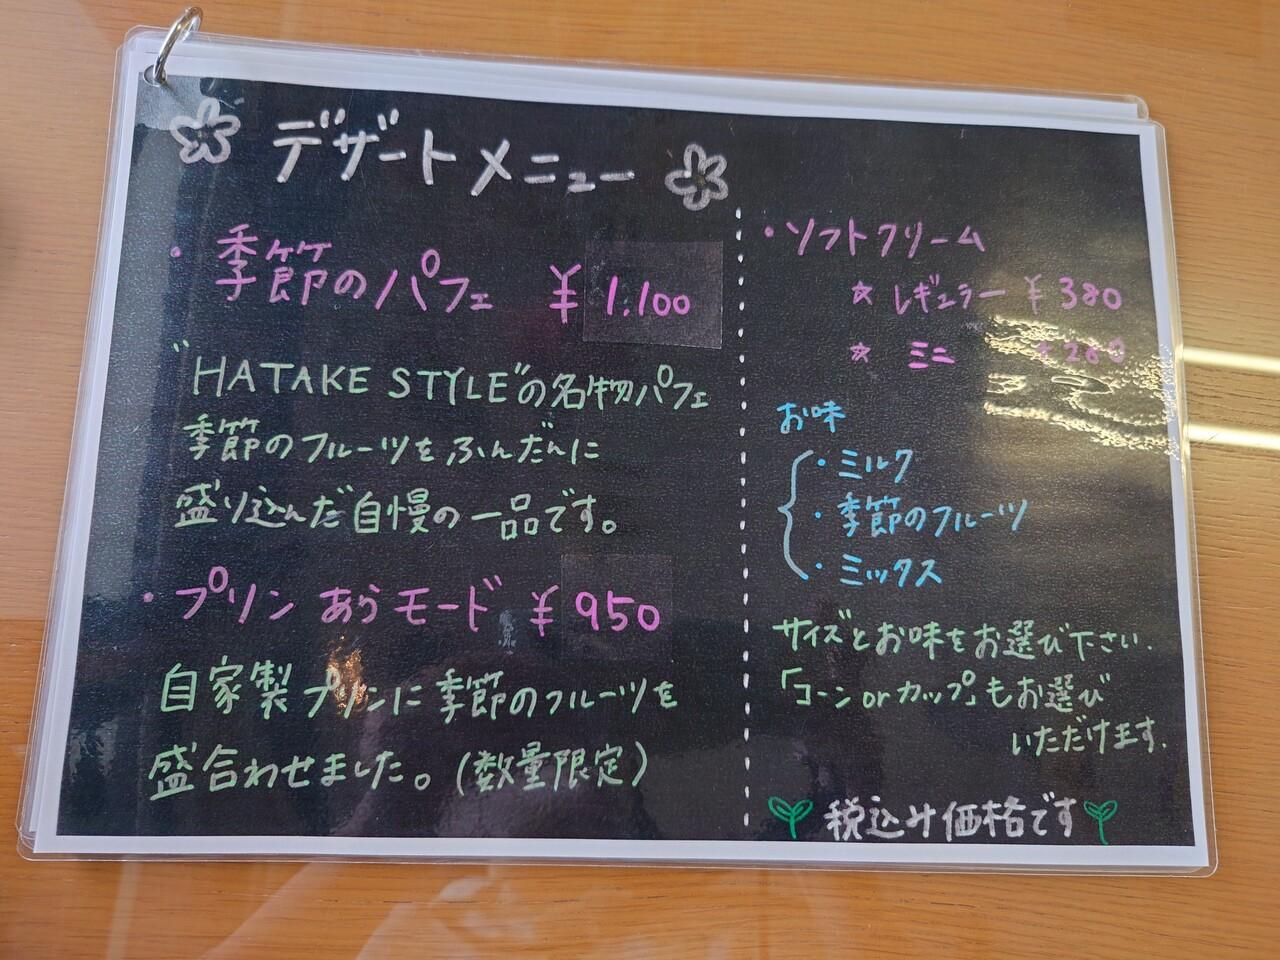 デザートメニュー
・季節のパフェ ¥1.100
"HATAKE STYLE"の名物パフェ
季節のフルーツをふんだんに
盛り込んだ自慢の一品です。
・プリンあらモード ¥950
自家製プリンに季節のフルーツを
盛合わせました。(数量限定)
・ソフトクリーム
☆ レギュラー ¥380
☆ ミニ ¥280
お味
・ミルク
・季節のフルーツ
・ミックス
サイズとお味をお選び下さい.
「コーンorカップ」もお選び
いただけます.
税込み価格です